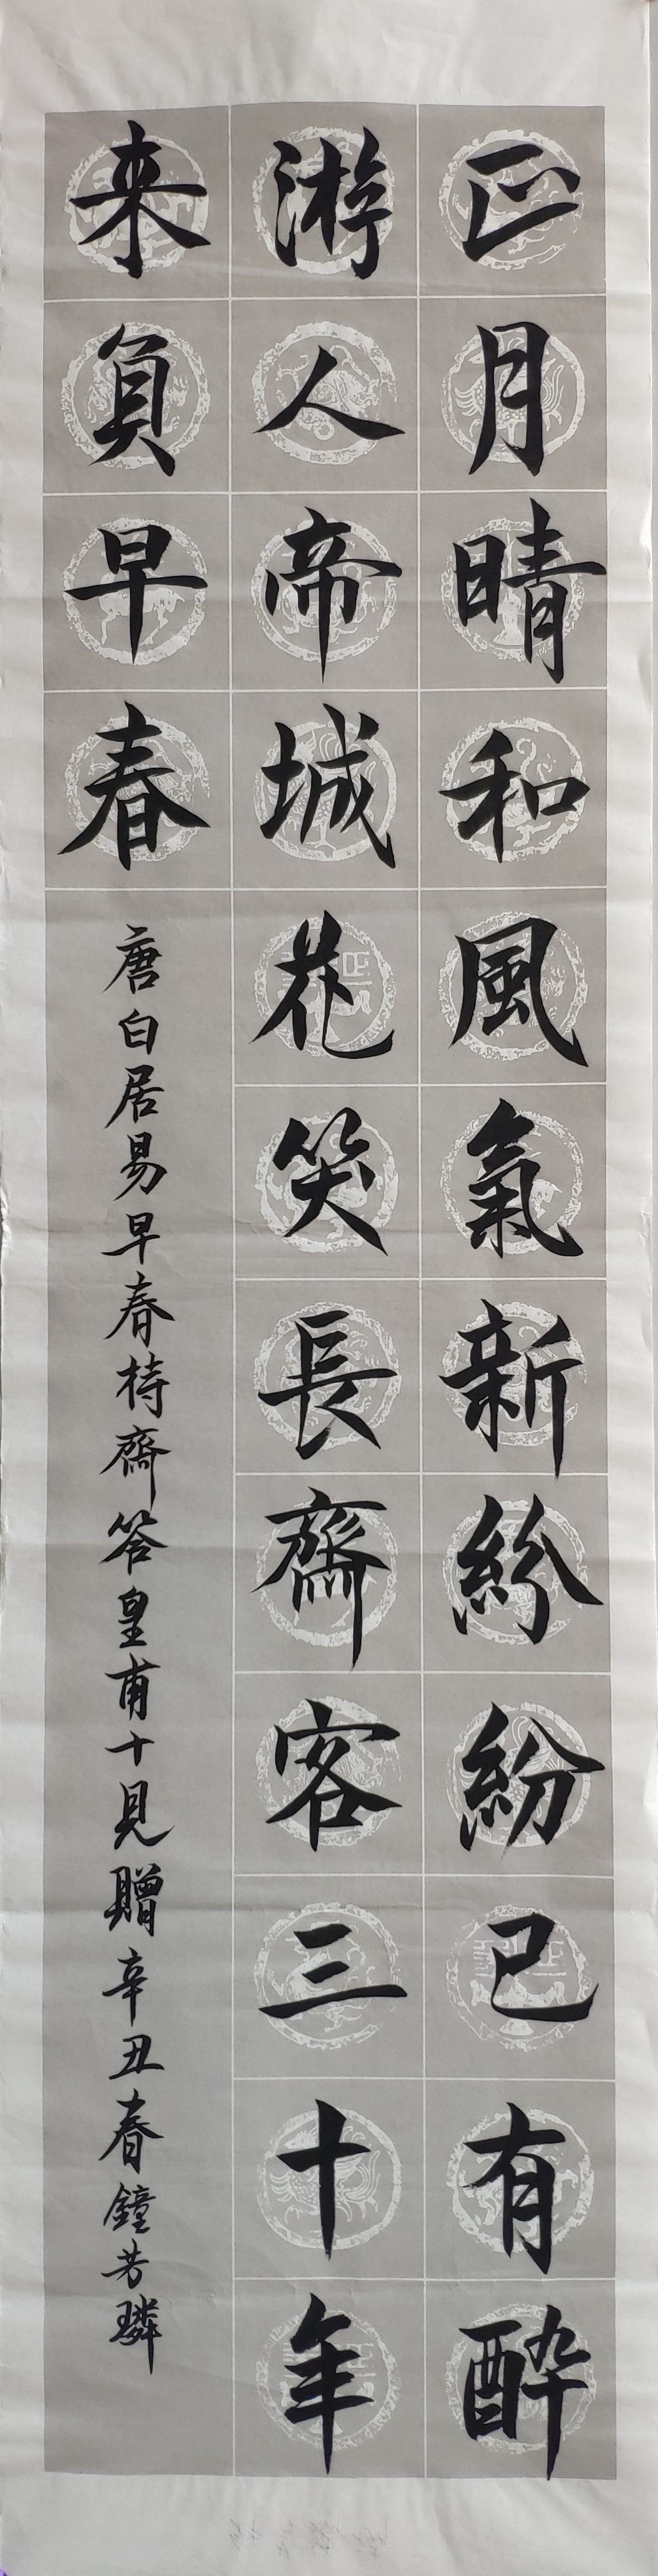 正月晴和風氣新紛紛已有醉
游人帝城花笑長齋客三十年
来負早春
唐白居易早春持齋答皇甫十見贈辛丑春鐘芳璘